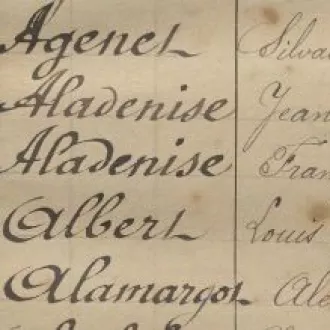 Agenet Silva
Aladenise Jean
Aladenise Fran
Albert Louis
Alamargot Ale